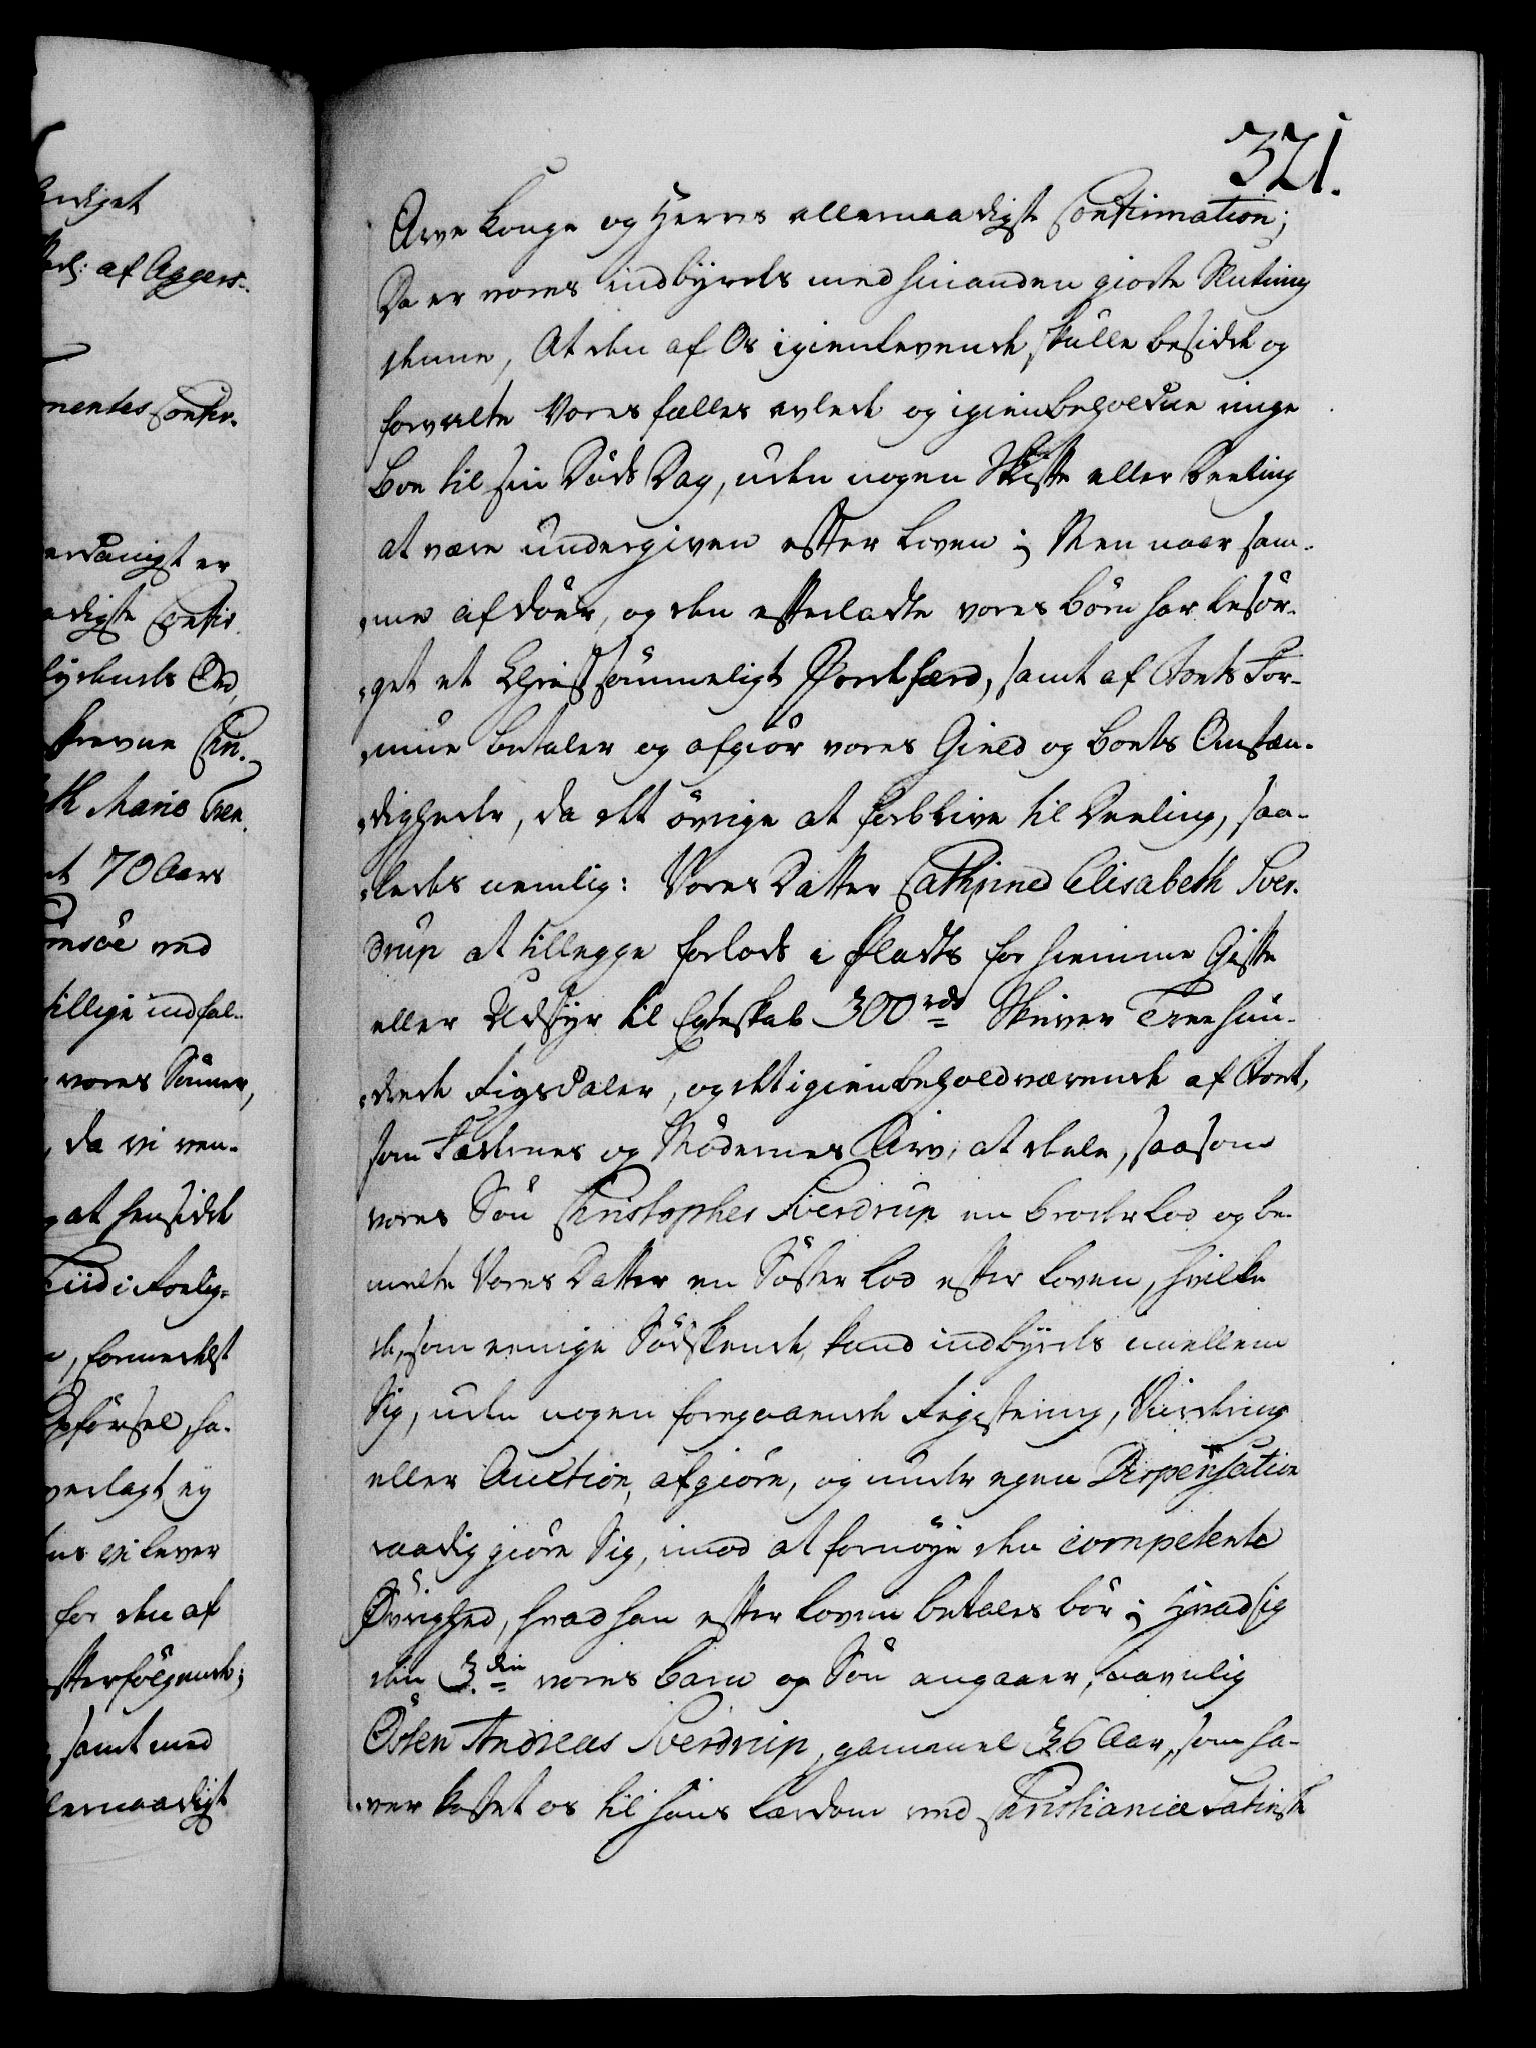 321.
Arve Konge og Herres allernaadigste Confirmation;
Da er vores indbÿrdes med hinanden giorte Slutning
denne, At den af Os igienlevende skulle besidde og
forvalte Vores fælles avlede og igienbeholdne ringe
Boe til sin Døds Dag, uden nogen Skifte eller Deeling
at være undergiven efter Loven; Men naar sam-
me afdøer, og den efterladte vores børn har besør-
get et Christsømmeligt Jordefærd, samt af Boets For-
mue betaler og afgiør vores Gield og Boets Omstæn-
digheder, da det øvrige at forblive til Deeling, saa-
ledes nemlig: Vores Datter Cathrine Elisabeth Sver-
drup at tillegge forlods i Pladts for hiemme Gifte
eller Udstÿr til Egteskab 300 rdr Skriver Treehun-
drede Rigsdaler, og det igienbehold værende af Boet,
som Fædrenes og Mødernes Arv, at deele, saasom
vores Søn Christopher Sverdrup en broder Lod og be-
melte Vores Datter en Søster Lod efter Loven, hvilke
de, som eenige Sødskende, kand indbÿrdes imellem
Sig, uden nogen foregaaende Registering, Vurdering
eller Auction, afgiøre, og under egen Dispensation
raadig giøre Sig, imod at fornøÿe den competente
Øvrighed, hvad han efter Loven betales bør; Hvad sig
den 3die vores barn og Søn angaaer, navnlig
Østen Andreas Sverdrup, gammel 36 Aar, som ha-
ver kostet os til hans Lærdom ved Christiania Latinske